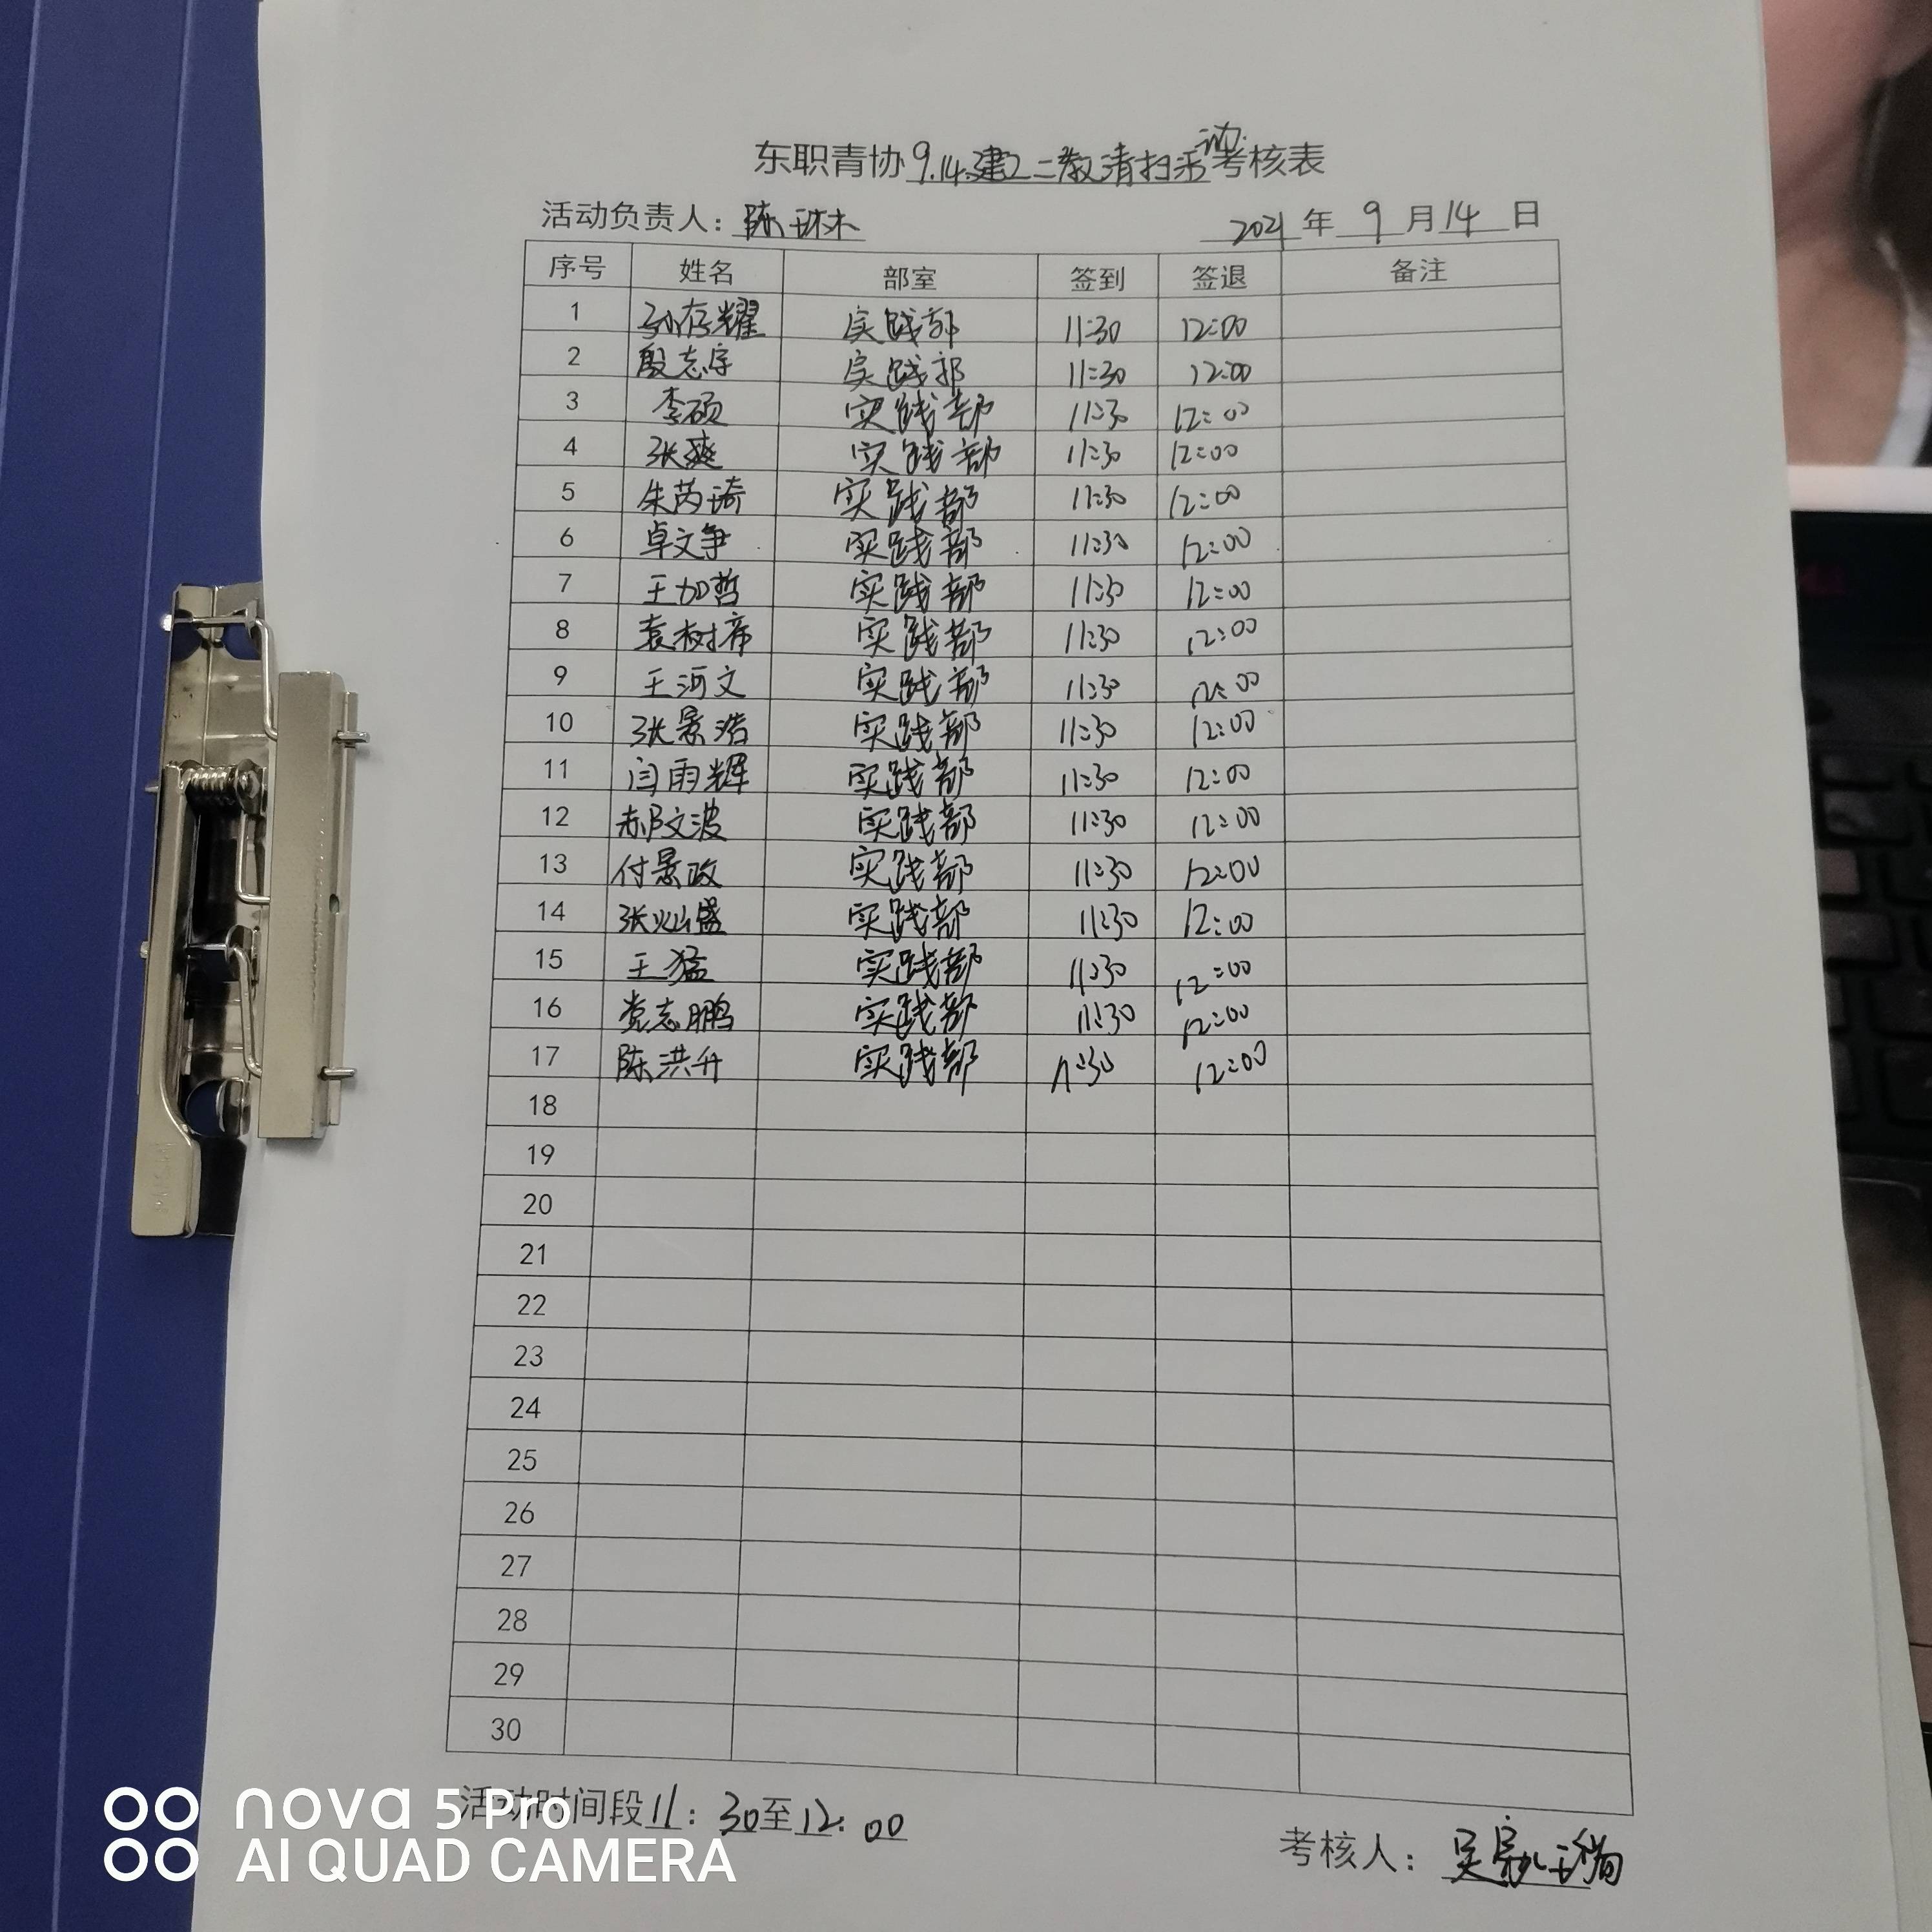 东职青协9.14.建工二教清扫活动考核表
活动负责人：陈琳木
2021年9月14日
序号 姓名 部室 签到 签退 备注
1 孙存耀 实践部 11:30 12:00
2 殷志宇 实践部 11:30 12:00
3 李硕 实践部 11:30 12:00
4 张爽 实践部 11:30 12:00
5 朱芮琦 实践部 11:30 12:00
6 卓文争 实践部 11:30 12:00
7 王加哲 实践部 11:30 12:00
8 袁树帝 实践部 11:30 12:00
9 王河文 实践部 11:30 12:00
10 张景浩 实践部 11:30 12:00
11 闫雨辉 实践部 11:30 12:00
12 郝文波 实践部 11:30 12:00
13 付景政 实践部 11:30 12:00
14 张灿盛 实践部 11:30 12:00
15 王猛 实践部 11:30 12:00
16 党志鹏 实践部 11:30 12:00
17 陈洪升 实践部 11:30 12:00
18
19
20
21
22
23
24
25
26
27
28
29
30
活动时间段11：30至12：00
考核人：吴
nova 5 Pro
AI QUAD CAMERA